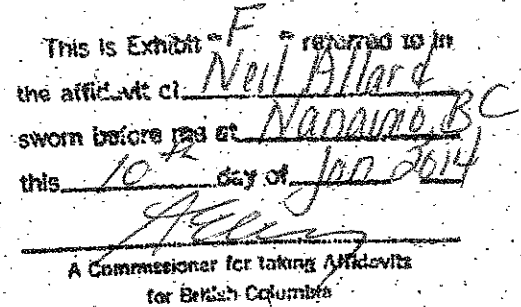 This is Exhibit "F" referred to in
the affidavit of Neil Allard
sworn before me at Nanaimo, BC
this 10th day of Jan 2014
A Commissioner for taking Affidavits
for British Columbia